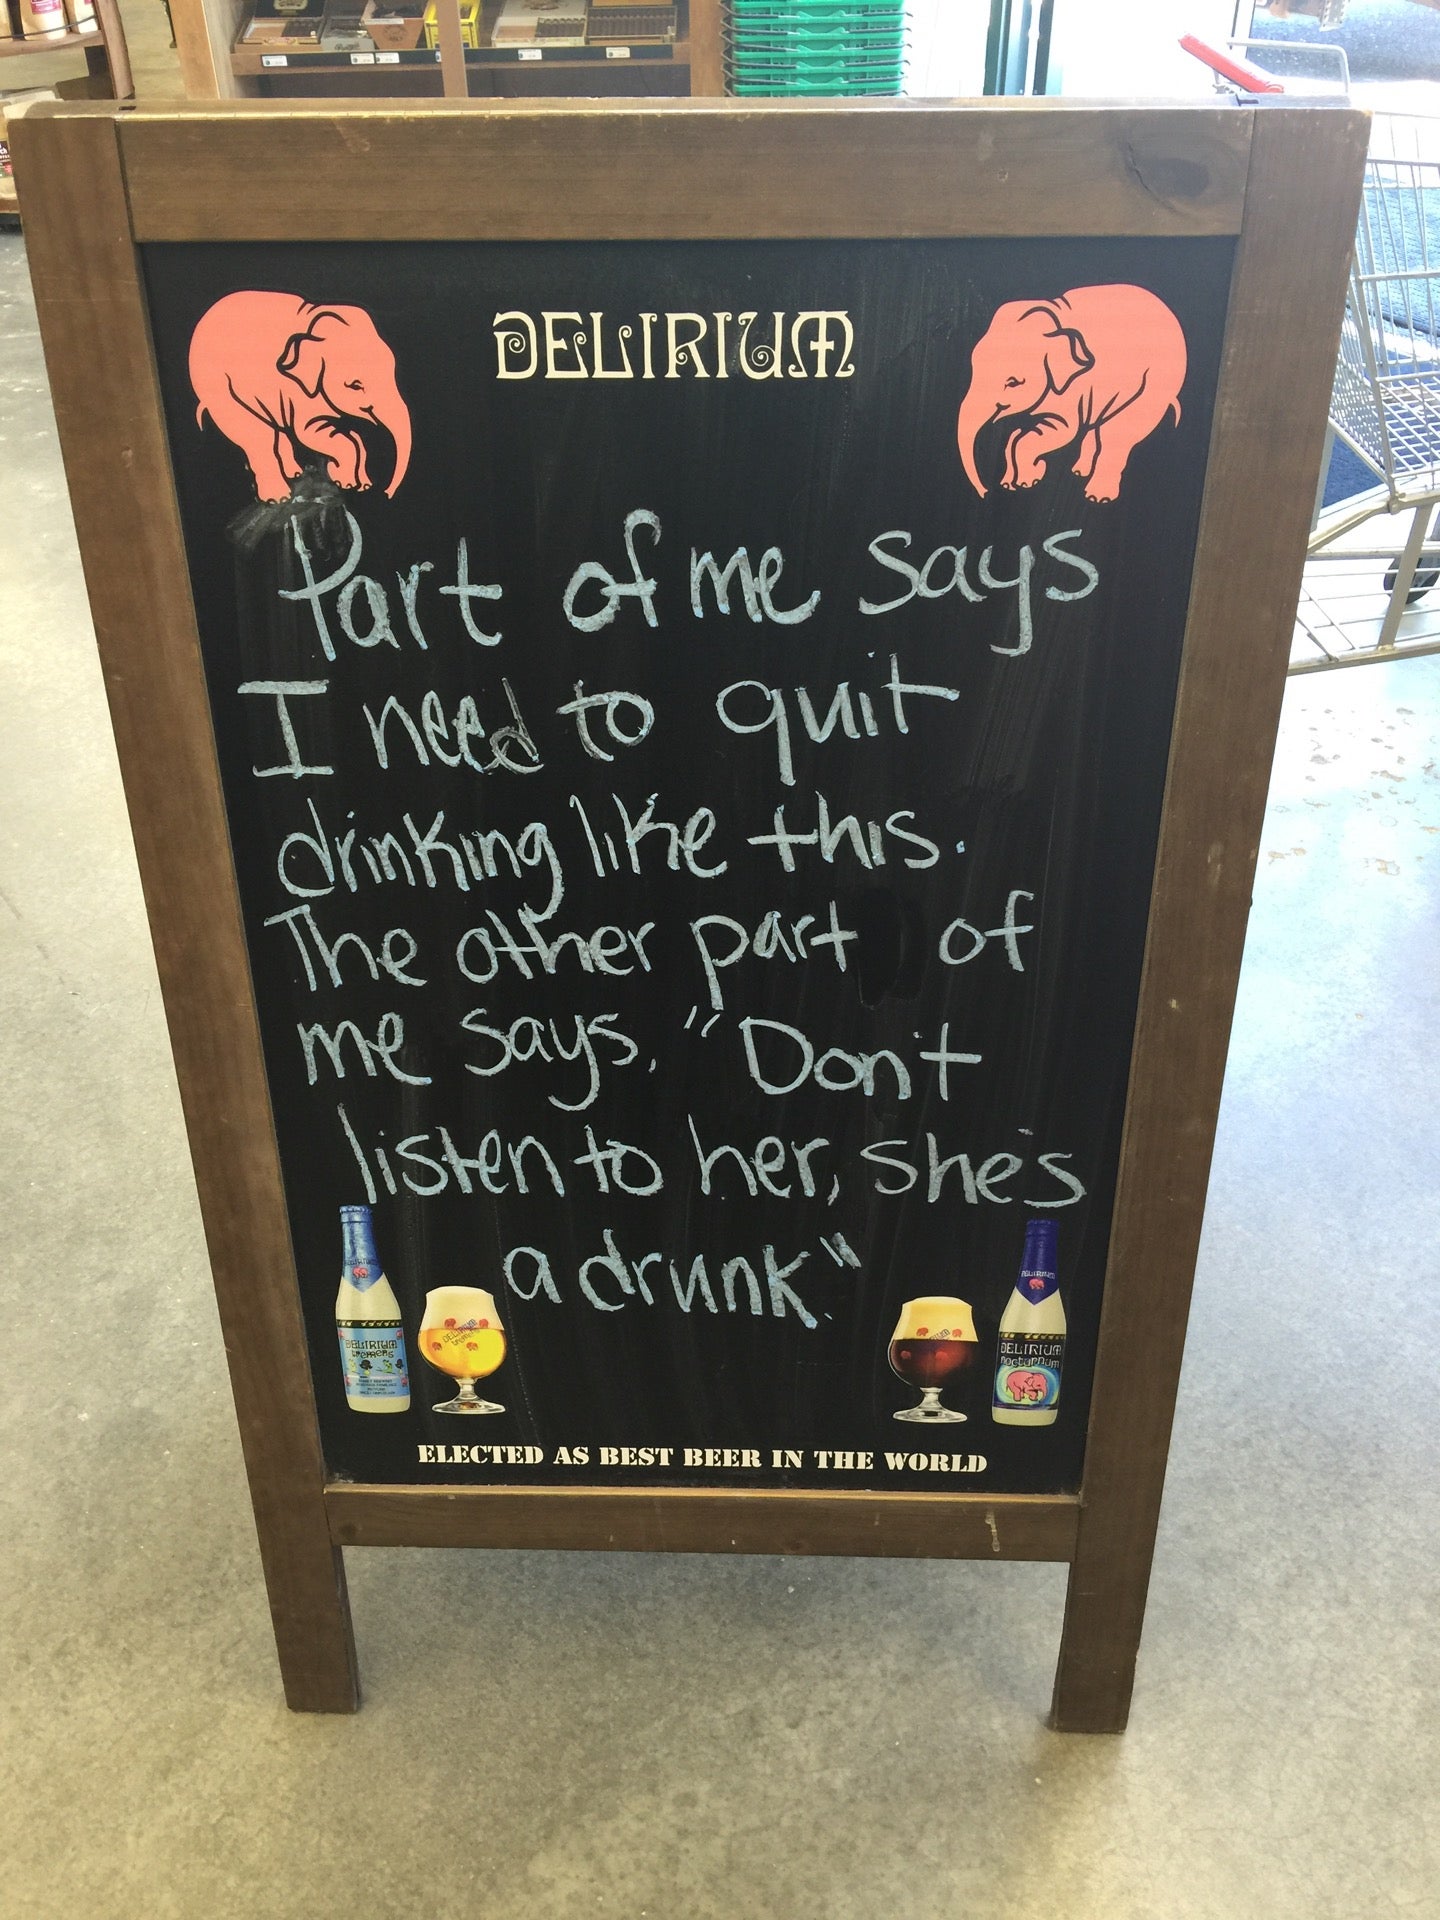 DELIRIUM
Part of me says
I need to quit
drinking like this.
The other part of
me says, "Don't
listen to her, she's
a drunk."
DELIRIUM
DELIRIUM
tremens
DELIRIUM
tremens
DELIRIUM
DELIRIUM
nocturnum
ELECTED AS BEST BEER IN THE WORLD